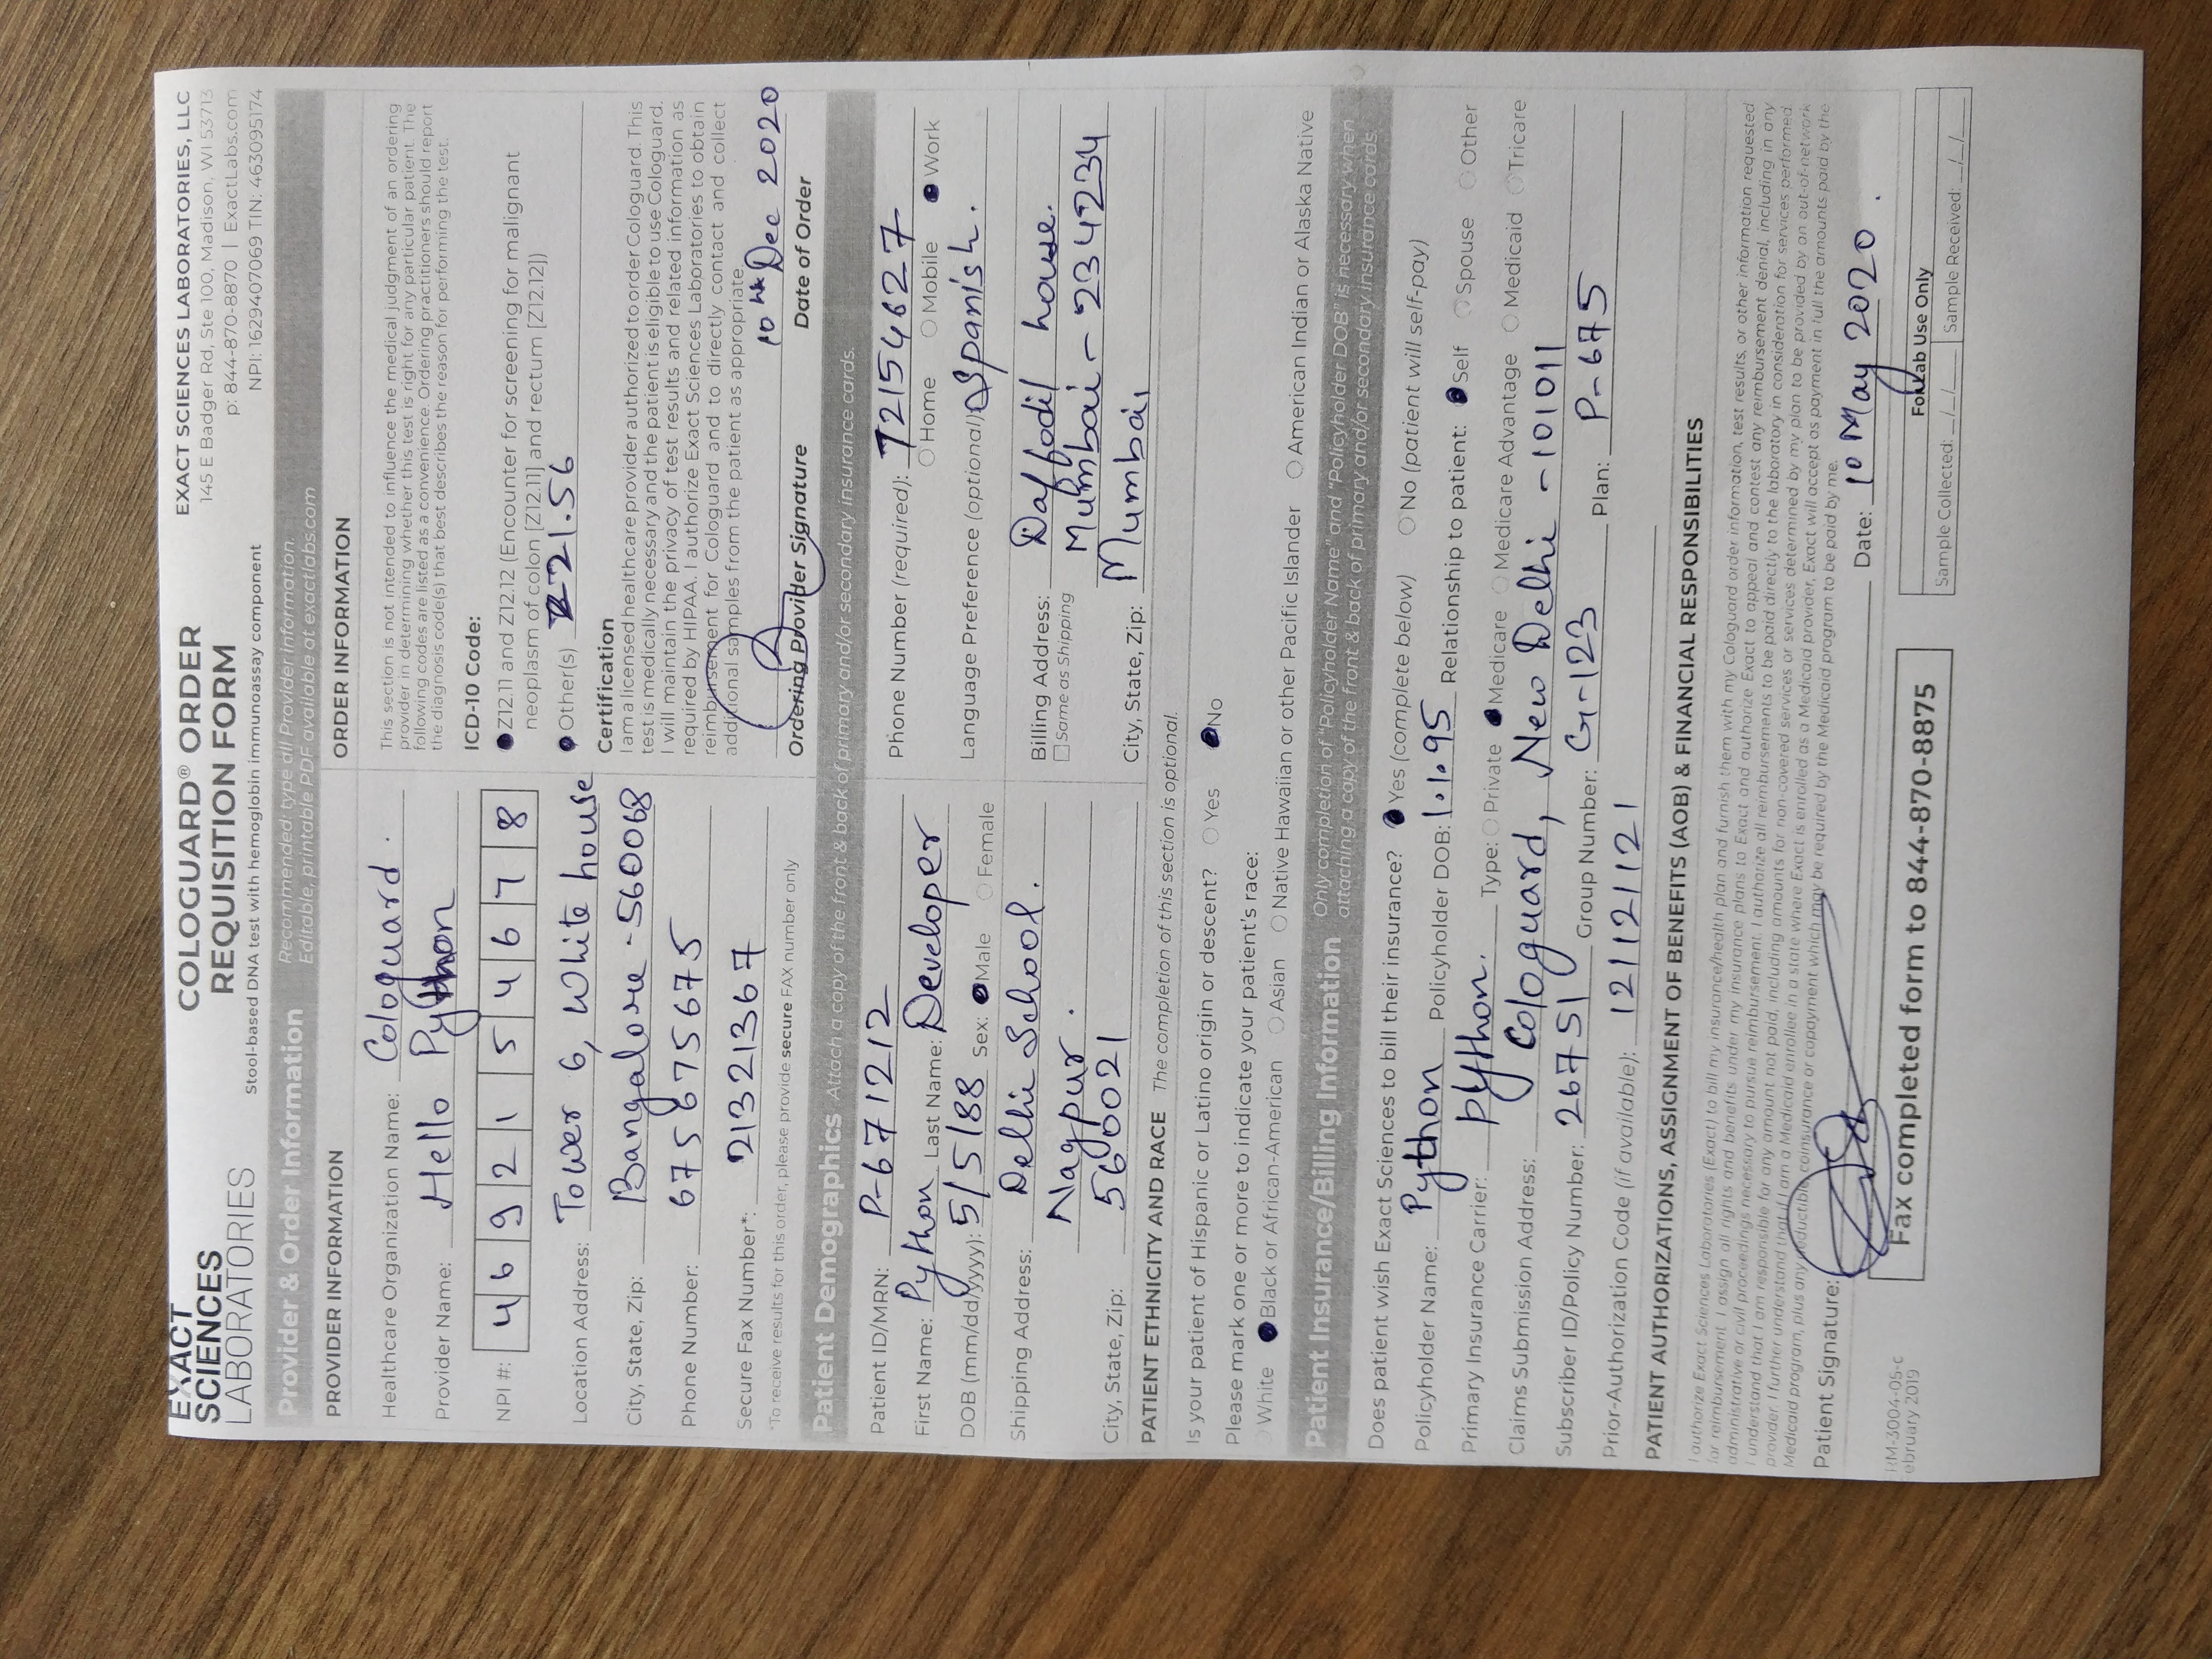 EXACT
SCIENCES
LABORATORIES
COLOGUARD® ORDER
REQUISITION FORM
Stool-based DNA test with hemoglobin immunoassay component
EXACT SCIENCES LABORATORIES, LLC
145 E Badger Rd, Ste 100, Madison, WI 53713
p: 844-870-8870 | ExactLabs.com
NPI: 1629407069 TIN: 463095174
Provider & Order Information
Recommended: type all Provider information.
Editable, printable PDF available at exactlabs.com
PROVIDER INFORMATION
Healthcare Organization Name: Cologuard.
Provider Name: Hello Python
NPI #: 4 6 9 2 1 5 4 6 7 8
Location Address: Tower 6, White house
City, State, Zip: Bangalore - 560068
Phone Number: 6756756675
Secure Fax Number*: 2132121367
*To receive results for this order, please provide secure FAX number only
ORDER INFORMATION
This section is not intended to influence the medical judgment of an ordering
provider in determining whether this test is right for any particular patient. The
following codes are listed as a convenience. Ordering practitioners should report
the diagnosis code(s) that best describes the reason for performing the test.
ICD-10 Code:
Z12.11 and Z12.12 (Encounter for screening for malignant
neoplasm of colon [Z12.11] and rectum [Z12.12])
Other(s) Z21.56
Certification
I am a licensed healthcare provider authorized to order Cologuard. This
test is medically necessary and the patient is eligible to use Cologuard.
I will maintain the privacy of test results and related information as
required by HIPAA. I authorize Exact Sciences Laboratories to obtain
reimbursement for Cologuard and to directly contact and collect
additional samples from the patient as appropriate.
10th Dec 2020
Ordering Provider Signature Date of Order
Patient Demographics Attach a copy of the front & back of primary and/or secondary insurance cards.
Patient ID/MRN: P-671212
First Name: Python Last Name: Developer
DOB (mm/dd/yyyy): 5/5/88 Sex: Male Female
Shipping Address: Delhi School.
Nagpur.
City, State, Zip: 560021
Phone Number (required): 72154627
Home Mobile Work
Language Preference (optional) Spanish.
Billing Address: Daffodil house.
Same as Shipping Mumbai - 234234
City, State, Zip: Mumbai
PATIENT ETHNICITY AND RACE The completion of this section is optional.
Is your patient of Hispanic or Latino origin or descent? Yes No
Please mark one or more to indicate your patient's race:
White Black or African-American Asian Native Hawaiian or other Pacific Islander American Indian or Alaska Native
Patient Insurance/Billing Information
Only completion of "Policyholder Name" and "Policyholder DOB" is necessary when
attaching a copy of the front & back of primary and/or secondary insurance cards.
Does patient wish Exact Sciences to bill their insurance? Yes (complete below) No (patient will self-pay)
Policyholder Name: Python Policyholder DOB: 1.1.95 Relationship to patient: Self Spouse Other
Primary Insurance Carrier: python. Type: Private Medicare Medicare Advantage Medicaid Tricare
Claims Submission Address: Cologuard, New Delhi - 101011
Subscriber ID/Policy Number: 26751 Group Number: Gr-123 Plan: P-675
Prior-Authorization Code (if available): 121121121
PATIENT AUTHORIZATIONS, ASSIGNMENT OF BENEFITS (AOB) & FINANCIAL RESPONSIBILITIES
I authorize Exact Sciences Laboratories (Exact) to bill my insurance/health plan and furnish them with my Cologuard order information, test results, or other information requested
for reimbursement. I assign all rights and benefits under my insurance plans to Exact and authorize Exact to appeal and contest any reimbursement denial, including in any
administrative or civil proceedings necessary to pursue reimbursement. I authorize all reimbursements to be paid directly to the laboratory in consideration for services performed.
I understand that I am responsible for any amount not paid, including amounts for non-covered services or services determined by my plan to be provided by an out-of-network
provider. I further understand that if I am a Medicaid enrollee in a state where Exact is enrolled as a Medicaid provider, Exact will accept as payment in full the amounts paid by the
Medicaid program, plus any deductible, coinsurance or copayment which may be required by the Medicaid program to be paid by me.
Patient Signature: Date: 10 May 2020.
Fax completed form to 844-870-8875
For Lab Use Only
Sample Collected: _/_/_ Sample Received: _/_/_
RM-3004-05-c
ebruary 2019